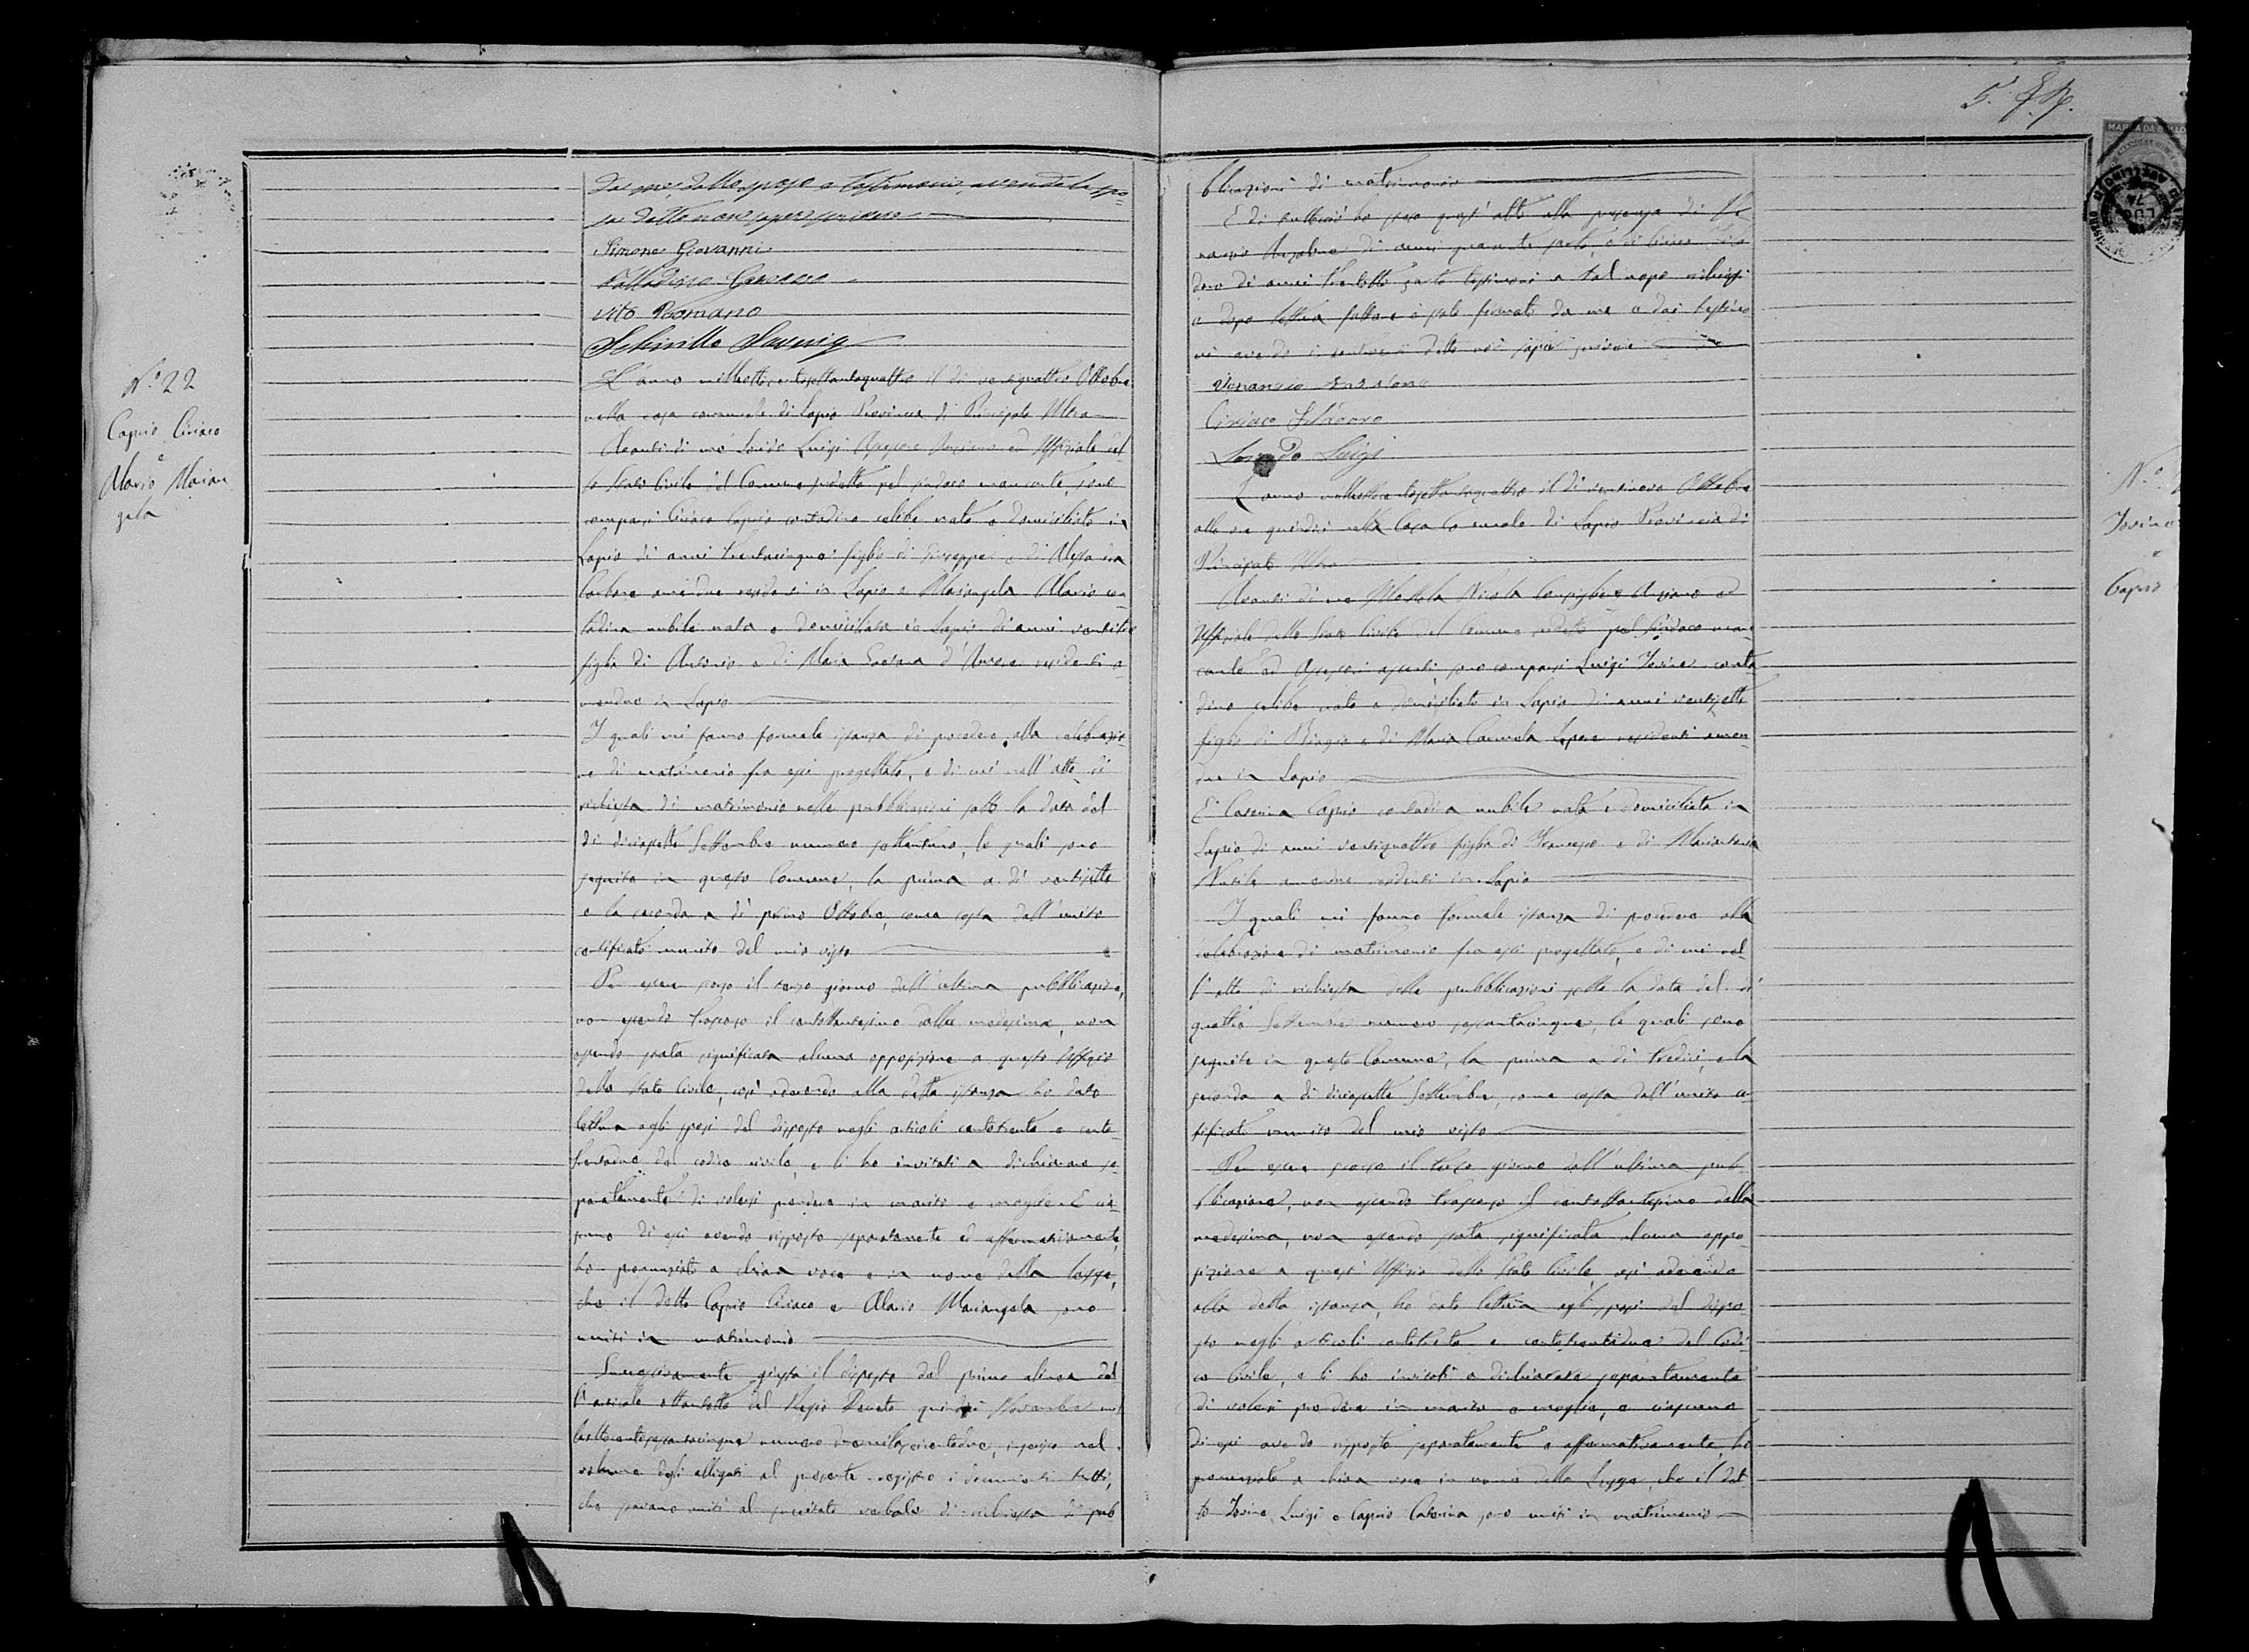 da me, dallo sposo e testimonii, avendo la spo-
sa detto non sapere scrivere
Simone Giovanni
Palladino
Vito Romano
Schirillo
N.° 22
Caprio Ciriaco
e
Alario Marian
gela
L'anno milleottocentosettantaquattro il dì ventiquattro Ottobre
nella casa comunale di Lapio Provincia di Principato Ultra
Avanti di me Luigi Assessore Anziano ed Uffiziale del
lo Stato Civile del Comune suddetto pel Sindaco mancante, sono
comparsi Ciriaco Caprio contadino celibe nato e domiciliato in
Lapio di anni trentacinque figlio di Giuseppe e di
Carbone amendue residenti in Lapio e Mariangela Alario con
tadina nubile nata e domiciliata in Lapio di anni
figlia di Antonio e di Maria d'Amore residenti a
mendue in Lapio
I quali mi fanno formale istanza di procedere alla celebrazio
ne di matrimonio fra essi progettato, e di cui nell'atto di
richiesta di matrimonio nelle pubblicazioni sotto la data del
dì diciassette Settembre numero settantuno, le quali sono
seguite in questo Comune, la prima a dì ventisette
e la seconda a dì primo Ottobre, come costa dall'unito
certificato munito del mio visto
Per essere scorso il terzo giorno dall'ultima pubblicazione,
non essendo trascorso il centottantesimo dalla medesima, non
essendo stata significata alcuna opposizione a questo Uffizio
dello Stato Civile, così aderendo alla detta istanza ho dato
lettura agli sposi del disposto negli articoli centotrenta e cento
trentadue del codice civile, e li ho invitati a dichiarare se
paratamente di volersi prendere in marito e moglie. E cia
scuno di essi avendo risposto separatamente ed affermativamente,
ho pronunziato a chiara voce e in nome della Legge,
che il detto Caprio Ciriaco e Alario Mariangela sono
uniti in matrimonio
Successivamente giusta il disposto dal primo alinea del
l'articolo ottantotto del Regio Decreto quindici Novembre mil
leottocentosessantacinque numero duemilaseicentodue, inserisco nel
volume degli allegati al presente registro i documenti tutti,
che furono uniti al precitato verbale di richiesta di pub
5.
blicazioni di matrimonio
E di tuttociò ho steso quest'atto alla presenza di Ve
nanzio Anzalone di anni e di Ciriaco
di anni trentotto testimoni a tal uopo richiesti
e dopo lettura fatta e è stato firmato da me e dai testimo
ni avendo i contraenti detto non saper scrivere
Venanzio Anzalone
Ciriaco
Luigi
L'anno milleottocentosettantaquattro il dì ventinove Ottobre
alle ore quindici nella Casa Comunale di Lapio Provincia di
Principato Ultra
Avanti di me Nicola Consigliere Anziano ed
Uffiziale dello Stato Civile del Comune suddetto pel Sindaco man
cante ed Assessori assenti, sono comparsi Luigi Iovine conta
dino celibe nato e domiciliato in Lapio di anni ventisette
figlio di Biagio e di Maria Carmela Lepore residenti amen
due in Lapio
E Caterina Caprio contadina nubile nata e domiciliata in
Lapio di anni ventiquattro figlia di Francesco e di Mariantonia
amendue residenti in Lapio
I quali mi fanno formale istanza di procedere alla
celebrazione di matrimonio fra essi progettato, e di cui nel
l'atto di richiesta delle pubblicazioni sotto la data del dì
quattro Settembre numero sessantacinque, le quali sono
seguite in questo Comune, la prima a dì tredici, e la
seconda a dì diciassette Settembre, come costa dall'unito cer
tificato munito del mio visto
Per essere scorso il terzo giorno dall'ultima pub-
blicazione, non essendo trascorso il centottantesimo dalla
medesima, non essendo stata significata alcuna oppo-
sizione a quest'Uffizio dello Stato Civile, così aderendo
alla detta istanza, ho dato lettura agli sposi del dispo
sto negli articoli centotrenta e centotrentadue del Codi
ce Civile, e li ho invitati a dichiarare separatamente
di volersi prendere in marito e moglie, e ciascuno
di essi avendo risposto separatamente e affermativamente, ho
pronunziato a chiara voce in nome della Legge, che il det
to Iovine Luigi e Caprio Caterina sono uniti in matrimonio
MARCA DA BOLLO
N.°
Iovine
e
Caprio